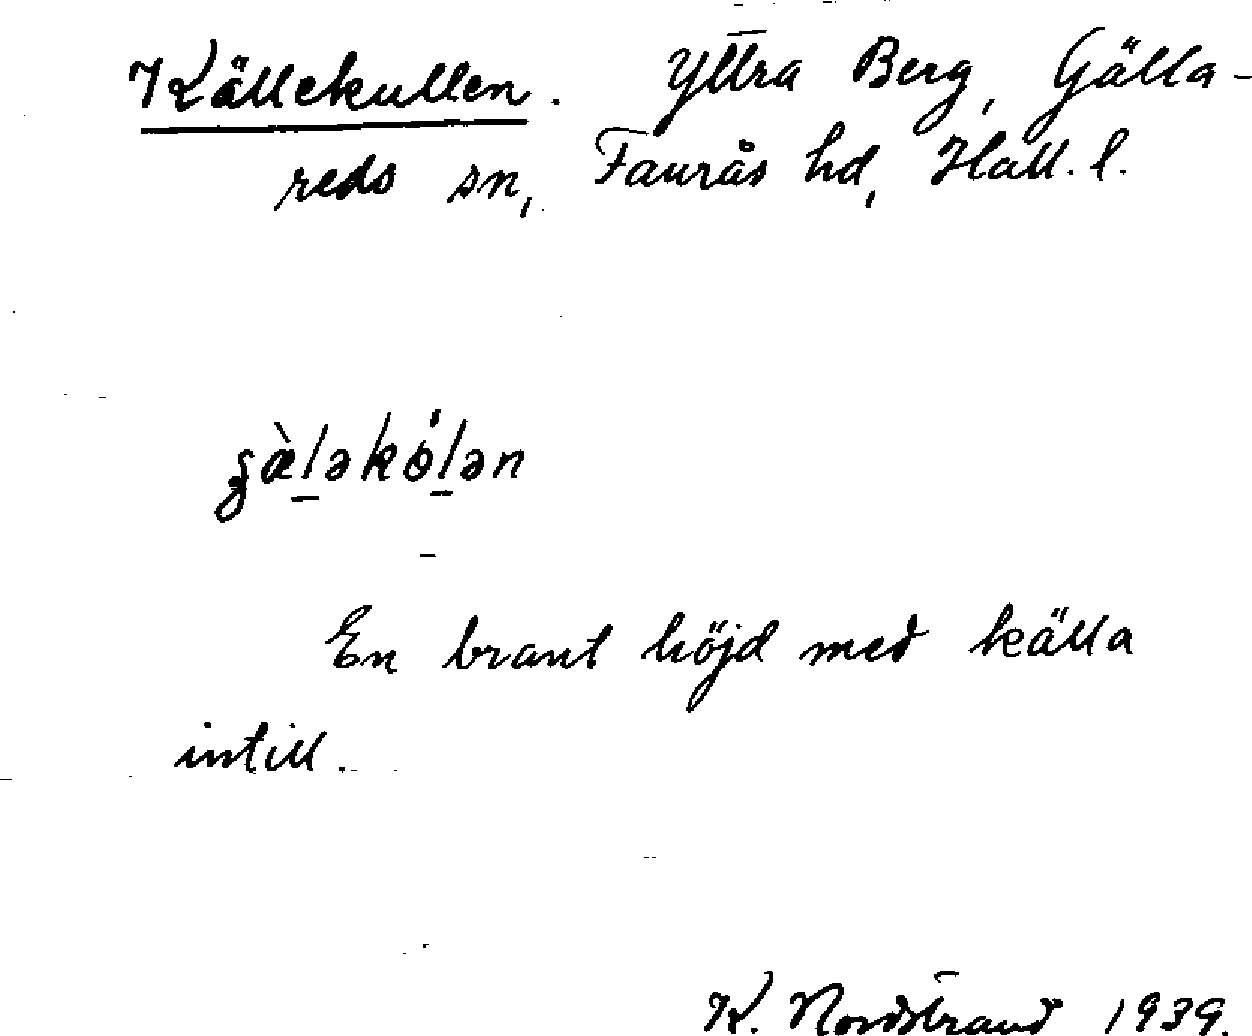 Källekullen. Yttra Berg, Gälla-
reds sn, Faurås hd, Hall. l.
En brant höjd med källa
intill.
K. Nordstrand 1939.